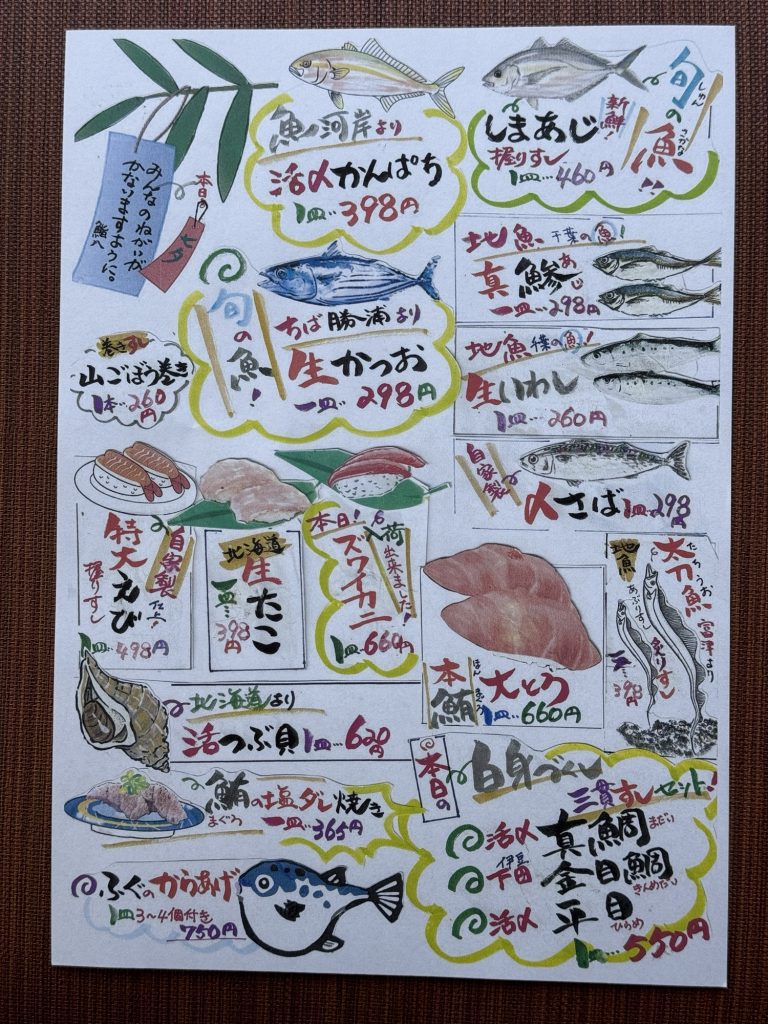 みんなのねがいが
かないますように。
鮨八
本日の
七夕
魚河岸より
活〆かんぱち
1皿…398円
旬の魚!!
しゅん
さかな
新鮮!
しまあじ
握りすし
1皿…460円
地魚 千葉の魚!
真鯵
あじ
一皿…298円
旬の魚!
ちば勝浦より
生かつお
一皿…298円
地魚 千葉の魚!
生いわし
1皿…260円
巻きすし
山ごぼう巻き
1本…260円
自家製
〆さば 1皿…298円
自家製 仕上げ
特大えび
握りすし
1皿…498円
北海道
生たこ
一皿…398円
本日!
入荷出来ました!
ズワイカニ
1皿…660円
本鮪
ほんまぐろ
大とろ
1皿…660円
地魚
太刀魚
たちうお
富津より
あぶりすし
炙りすし
一皿…398円
北海道より
活つぶ貝 1皿…620円
鮪の塩ダレ焼き
まぐろ
一皿…365円
ふぐのからあげ
1皿3〜4個付き
750円
本日の
白身づくし
三貫すしセット!
活〆 真鯛 まだい
伊豆
下田 金目鯛 きんめだい
活〆 平目 ひらめ
1皿…550円